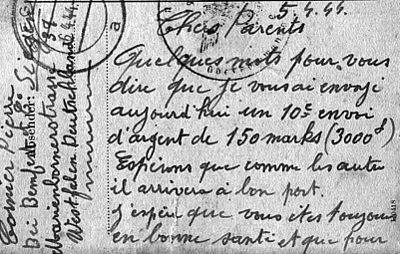 5.4.44.
Chers Parents
Quelques mots pour vous
dire que je vous ai envoyé
aujourd'hui un 10e envoi
d'argent de 150 marks (3000f)
Espérons que comme les autres
il arrivera à bon port.
J'espère que vous êtes toujours
en bonne santé et que pour
Pierre
bei
Absender:
Siegen
Westfalen Deutschland
a